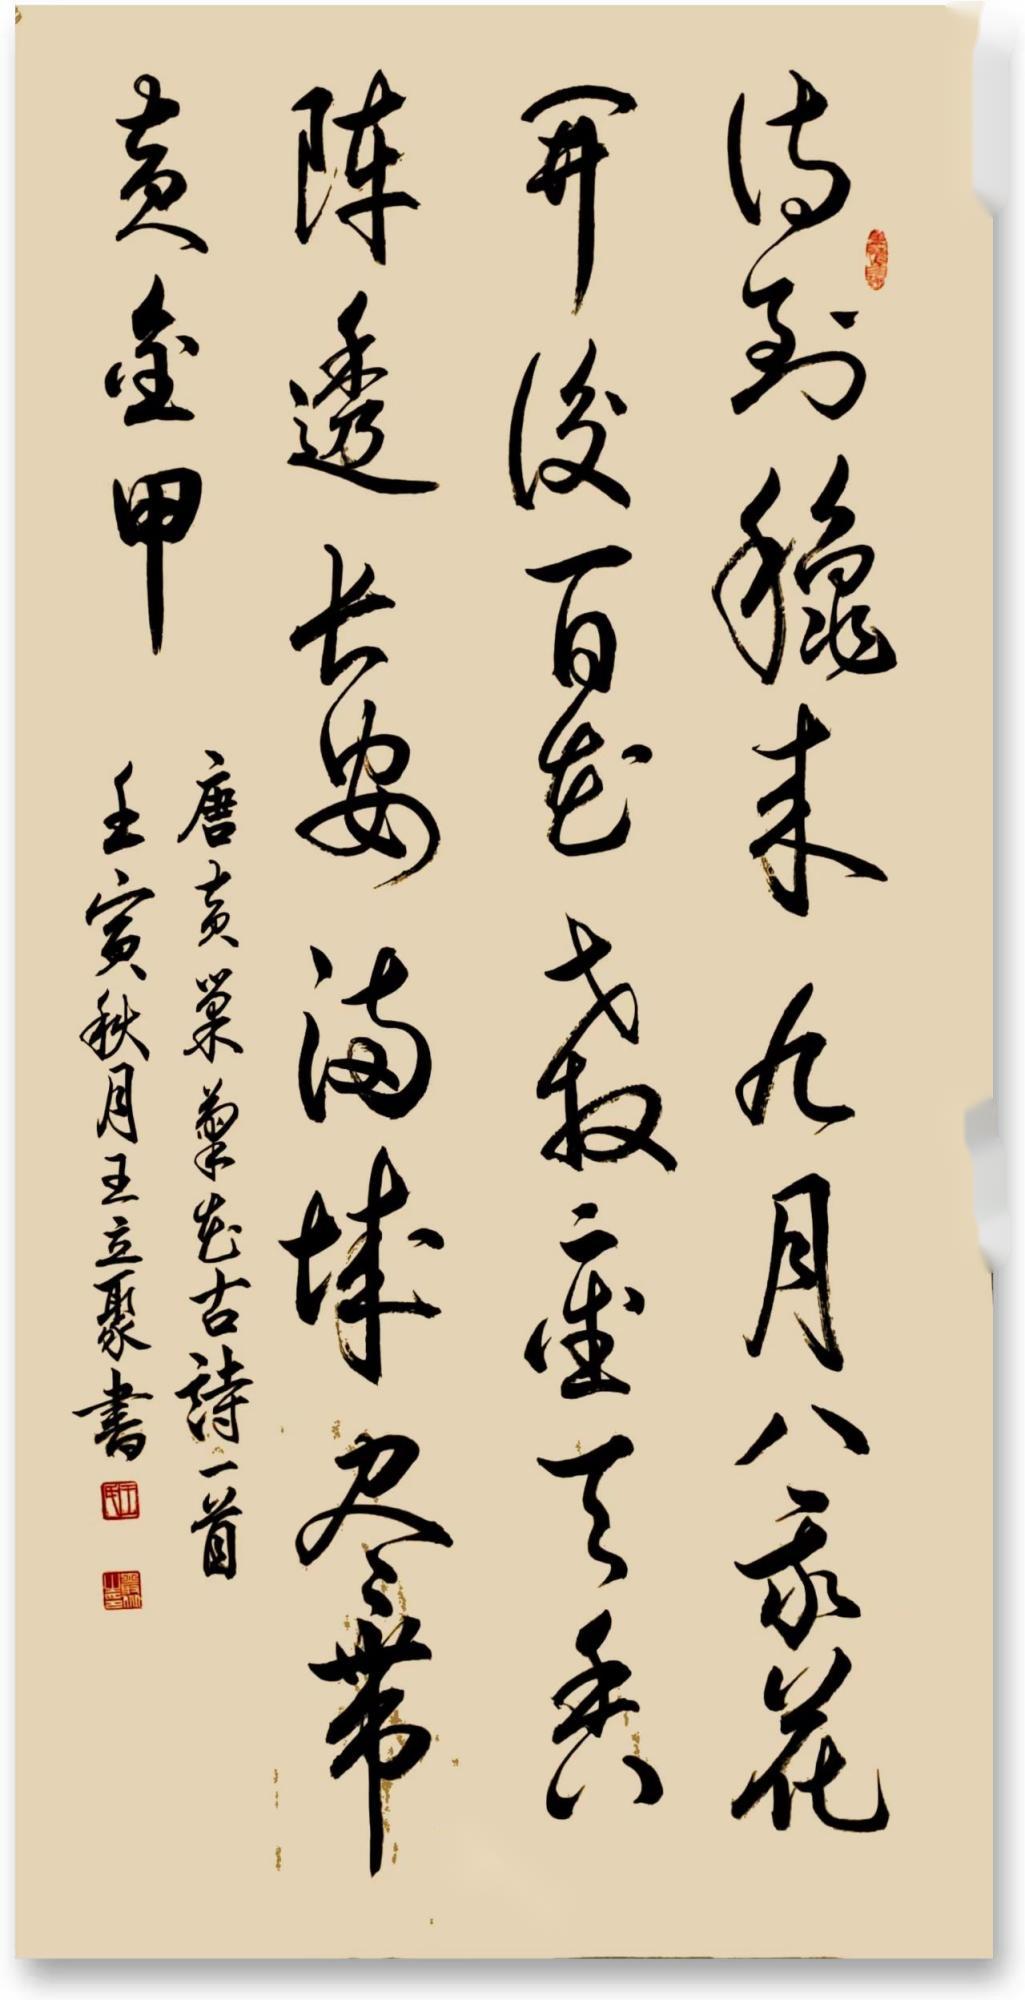 待到穐来九月八我花
開後百花殺衝天香
陣透长安满城尽带
黄金甲
唐黄巢菊花古詩一首
壬寅秋月王立聚書